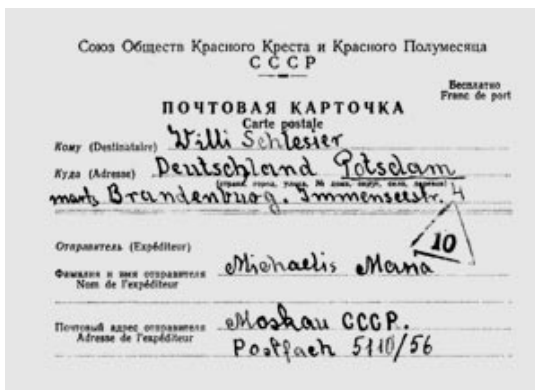 Союз Обществ Красного Креста и Красного Полумесяца
СССР
Бесплатно
Franc de port
ПОЧТОВАЯ КАРТОЧКА
Carte postale
Кому (Destinataire) Willi Schlesier
Куда (Adresse) Deutschland Potsdam
(страна, город, улица, № дома, округ, село, деревня)
Brandenburg. Immenseestr. 4
10
Отправитель (Expéditeur)
Фамилия и имя отправителя Michaelis Maria
Nom de l'expéditeur
Почтовый адрес отправителя Moskau CCCP.
Adresse de l'expéditeur Postfach 5110/56